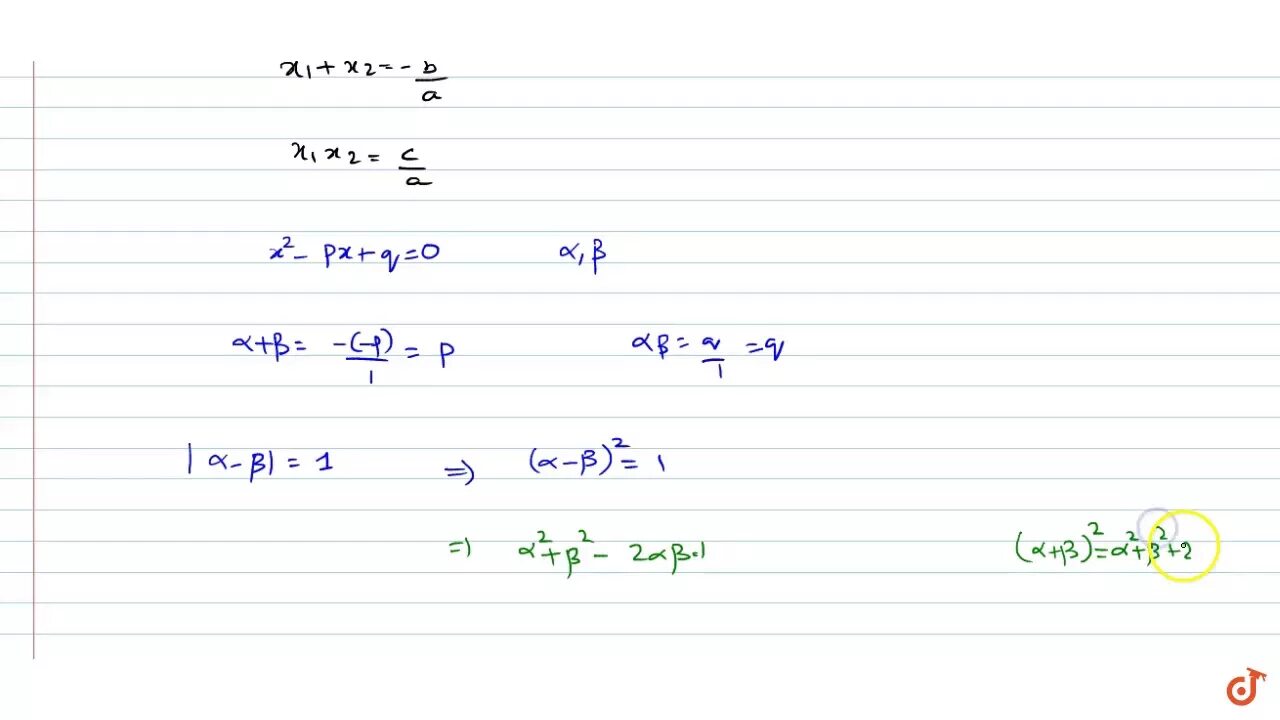 x₁ + x₂ = - b/a
x₁ x₂ = c/a
x² - px + q = 0 α, β
α+β = -(-p)/1 = p αβ = q/1 = q
|α-β| = 1 ⇒ (α-β)² = 1
⇒ α² + β² - 2αβ = 1 (α+β)² = α² + β² + 2